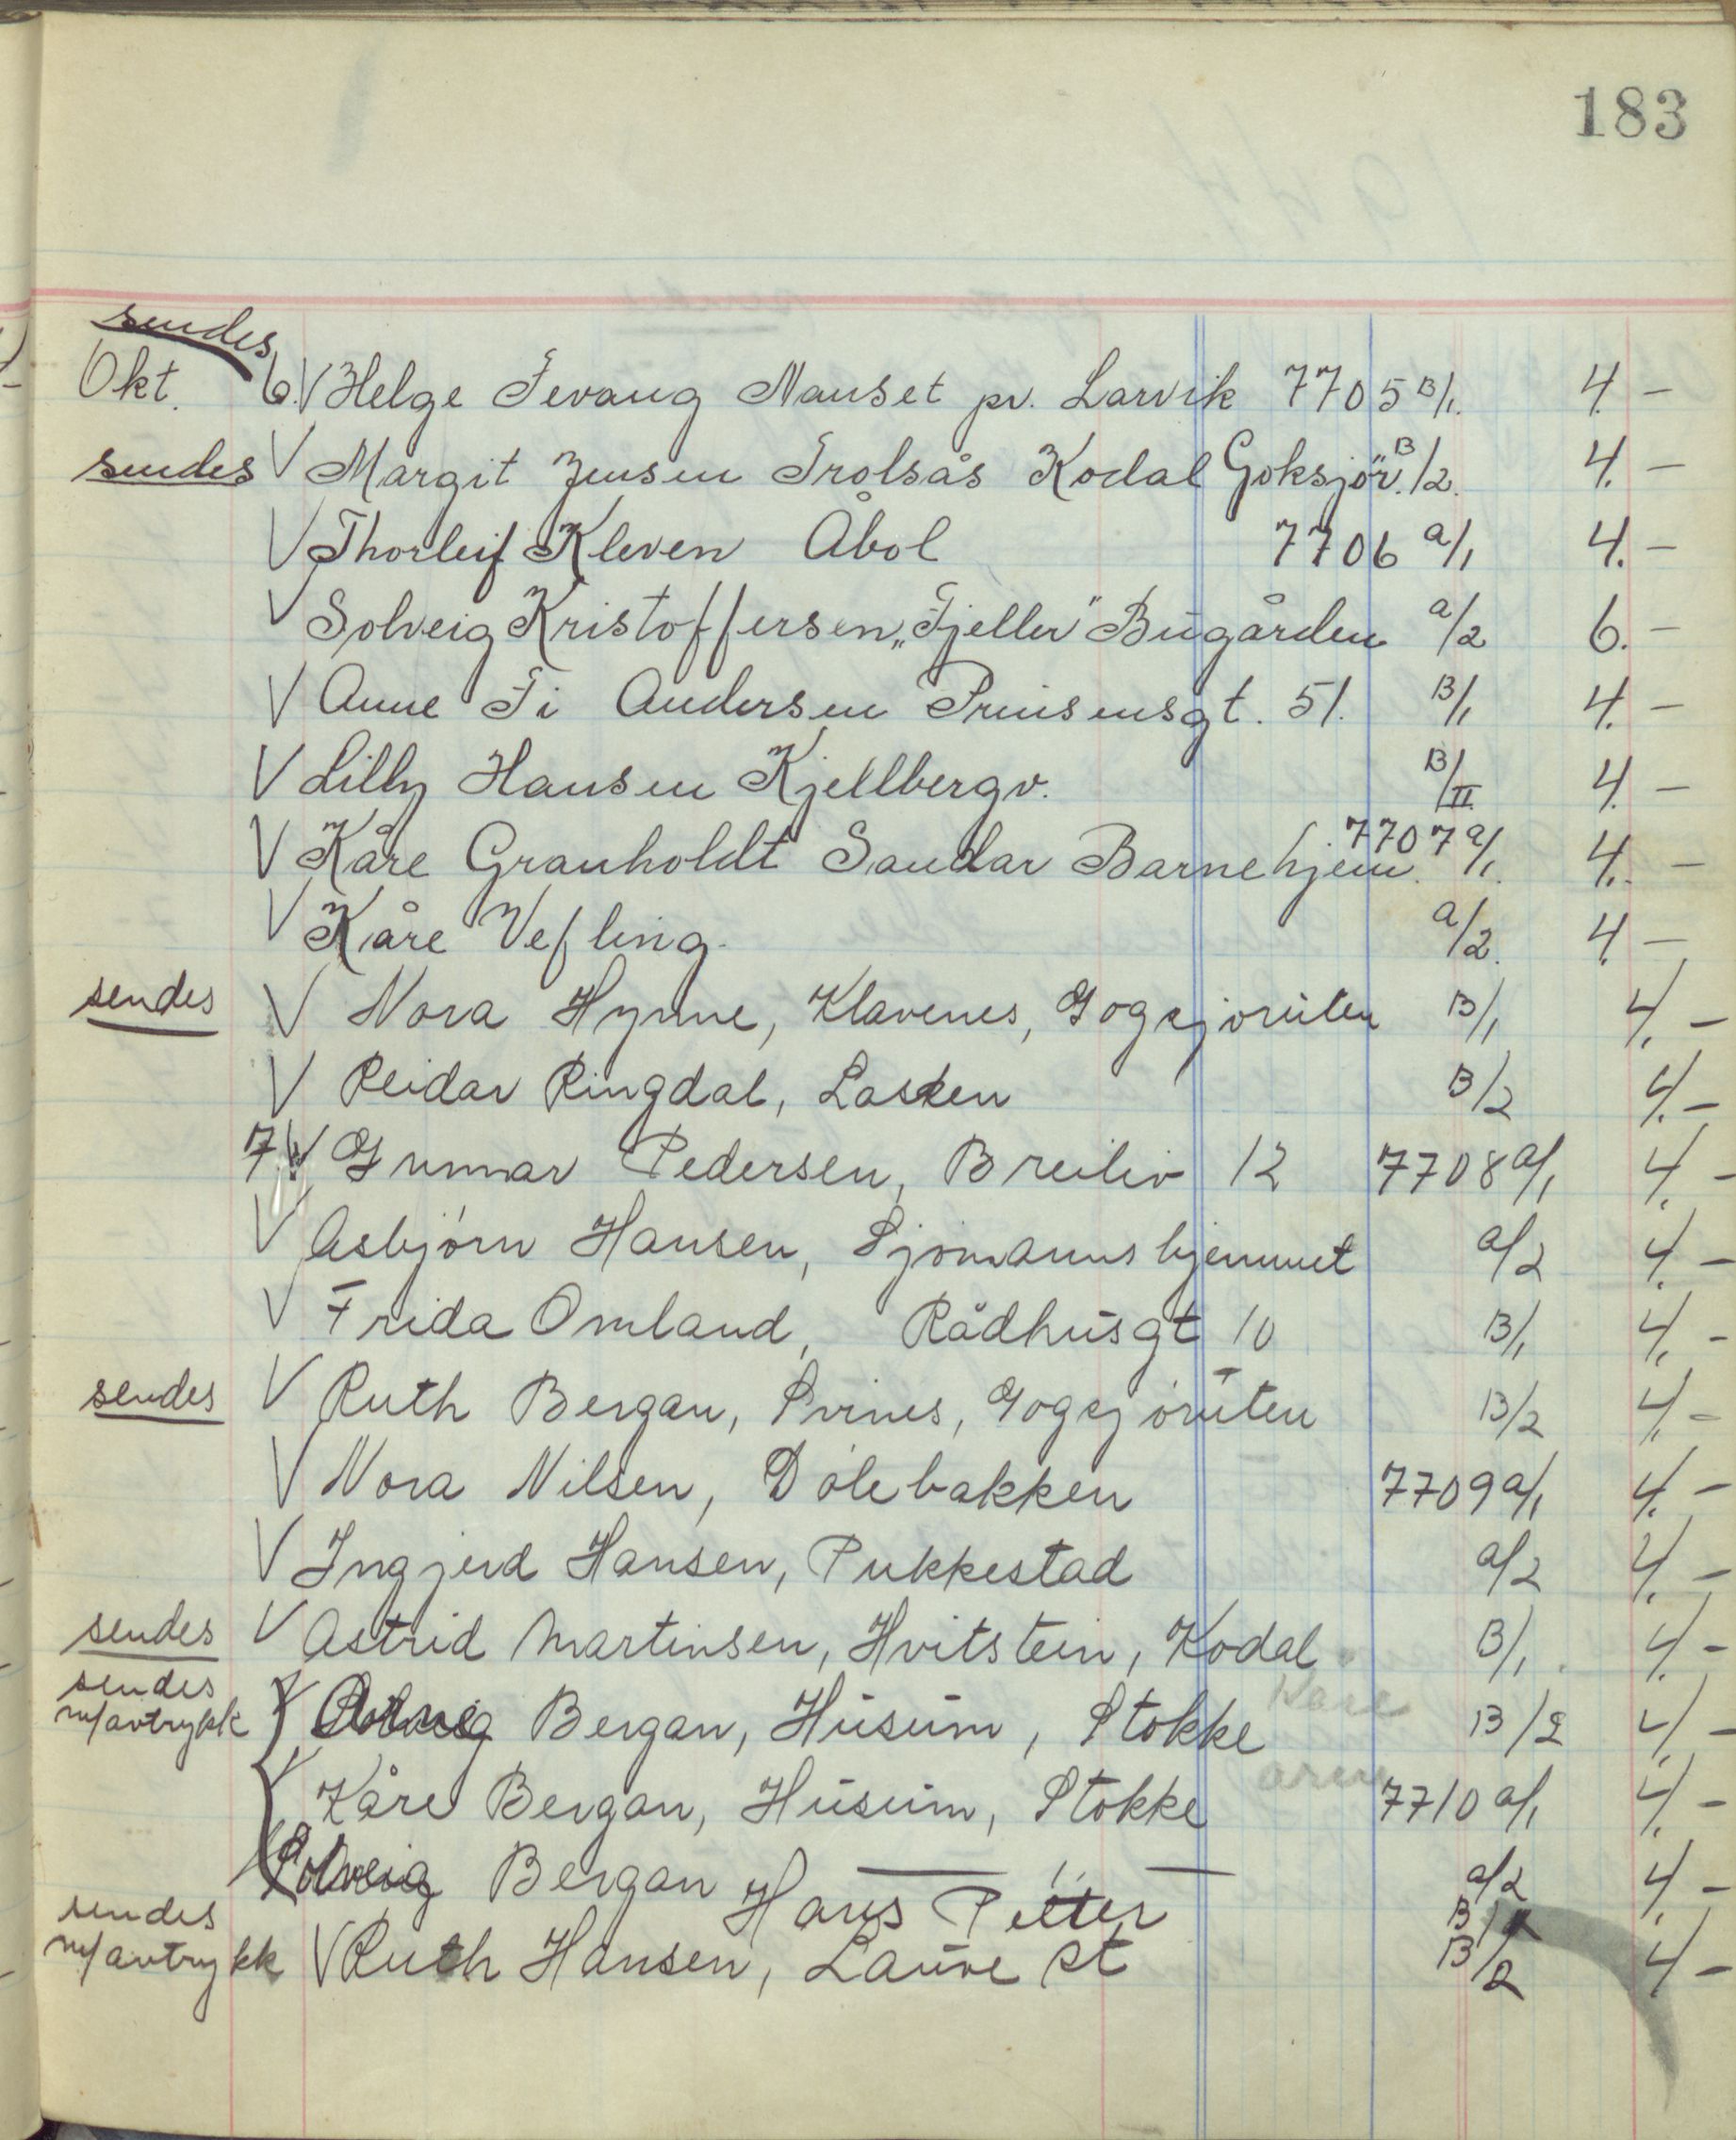 183
sendes
Okt. 6. V Helge Tevang Nanset pr. Larvik 7705 B/1. 4. -
sendes V Margit Jensen Trolsås Kodal Goksjör. B/2. 4. -
V Thorleif Kleven Åbol 7706 a/1 4. -
V Solveig Kristoffersen „Fjeller" Bugården a/2 6. -
V Anne Ti Andersen Prinsensgt. 51. B/1 4. -
V Lilly Hansen Kjellbergv. B/II 4. -
V Kåre Granholdt Sandar Barnehjem. 7707 a/1. 4. -
V Kåre Vefling. a/2. 4. -
sendes V Nora Hynne, Klavenes, Gogsjøruten B/1 4. -
V Reidar Ringdal, Lasken B/2 4. -
7. V Gunnar Pedersen, Breiliv 12 7708 a/1 4. -
V Asbjørn Hansen, Sjømannshjemmet a/2 4. -
V Frida Omland, Rådhusgt 10 B/1 4. -
sendes V Ruth Bergan, Svines, Gogsjøruten B/2 4. -
V Nora Nilsen, Dølebakken 7709 a/1 4. -
V Ingjerd Hansen, Pukkestad a/2 4. -
sendes V Astrid Martinsen, Hvitstein, Kodal B/1. 4. -
sendes
m/avtrykk V Bergan, Husum, Stokke Kåre B/2 4. -
V Kåre Bergan, Husum, Stokke 7710 a/1 4. -
Solveig Bergan — " — a/2 4. -
Hans Petter B/1
sendes
m/avtrykk V Ruth Hansen, Lauve st B/2 4. -